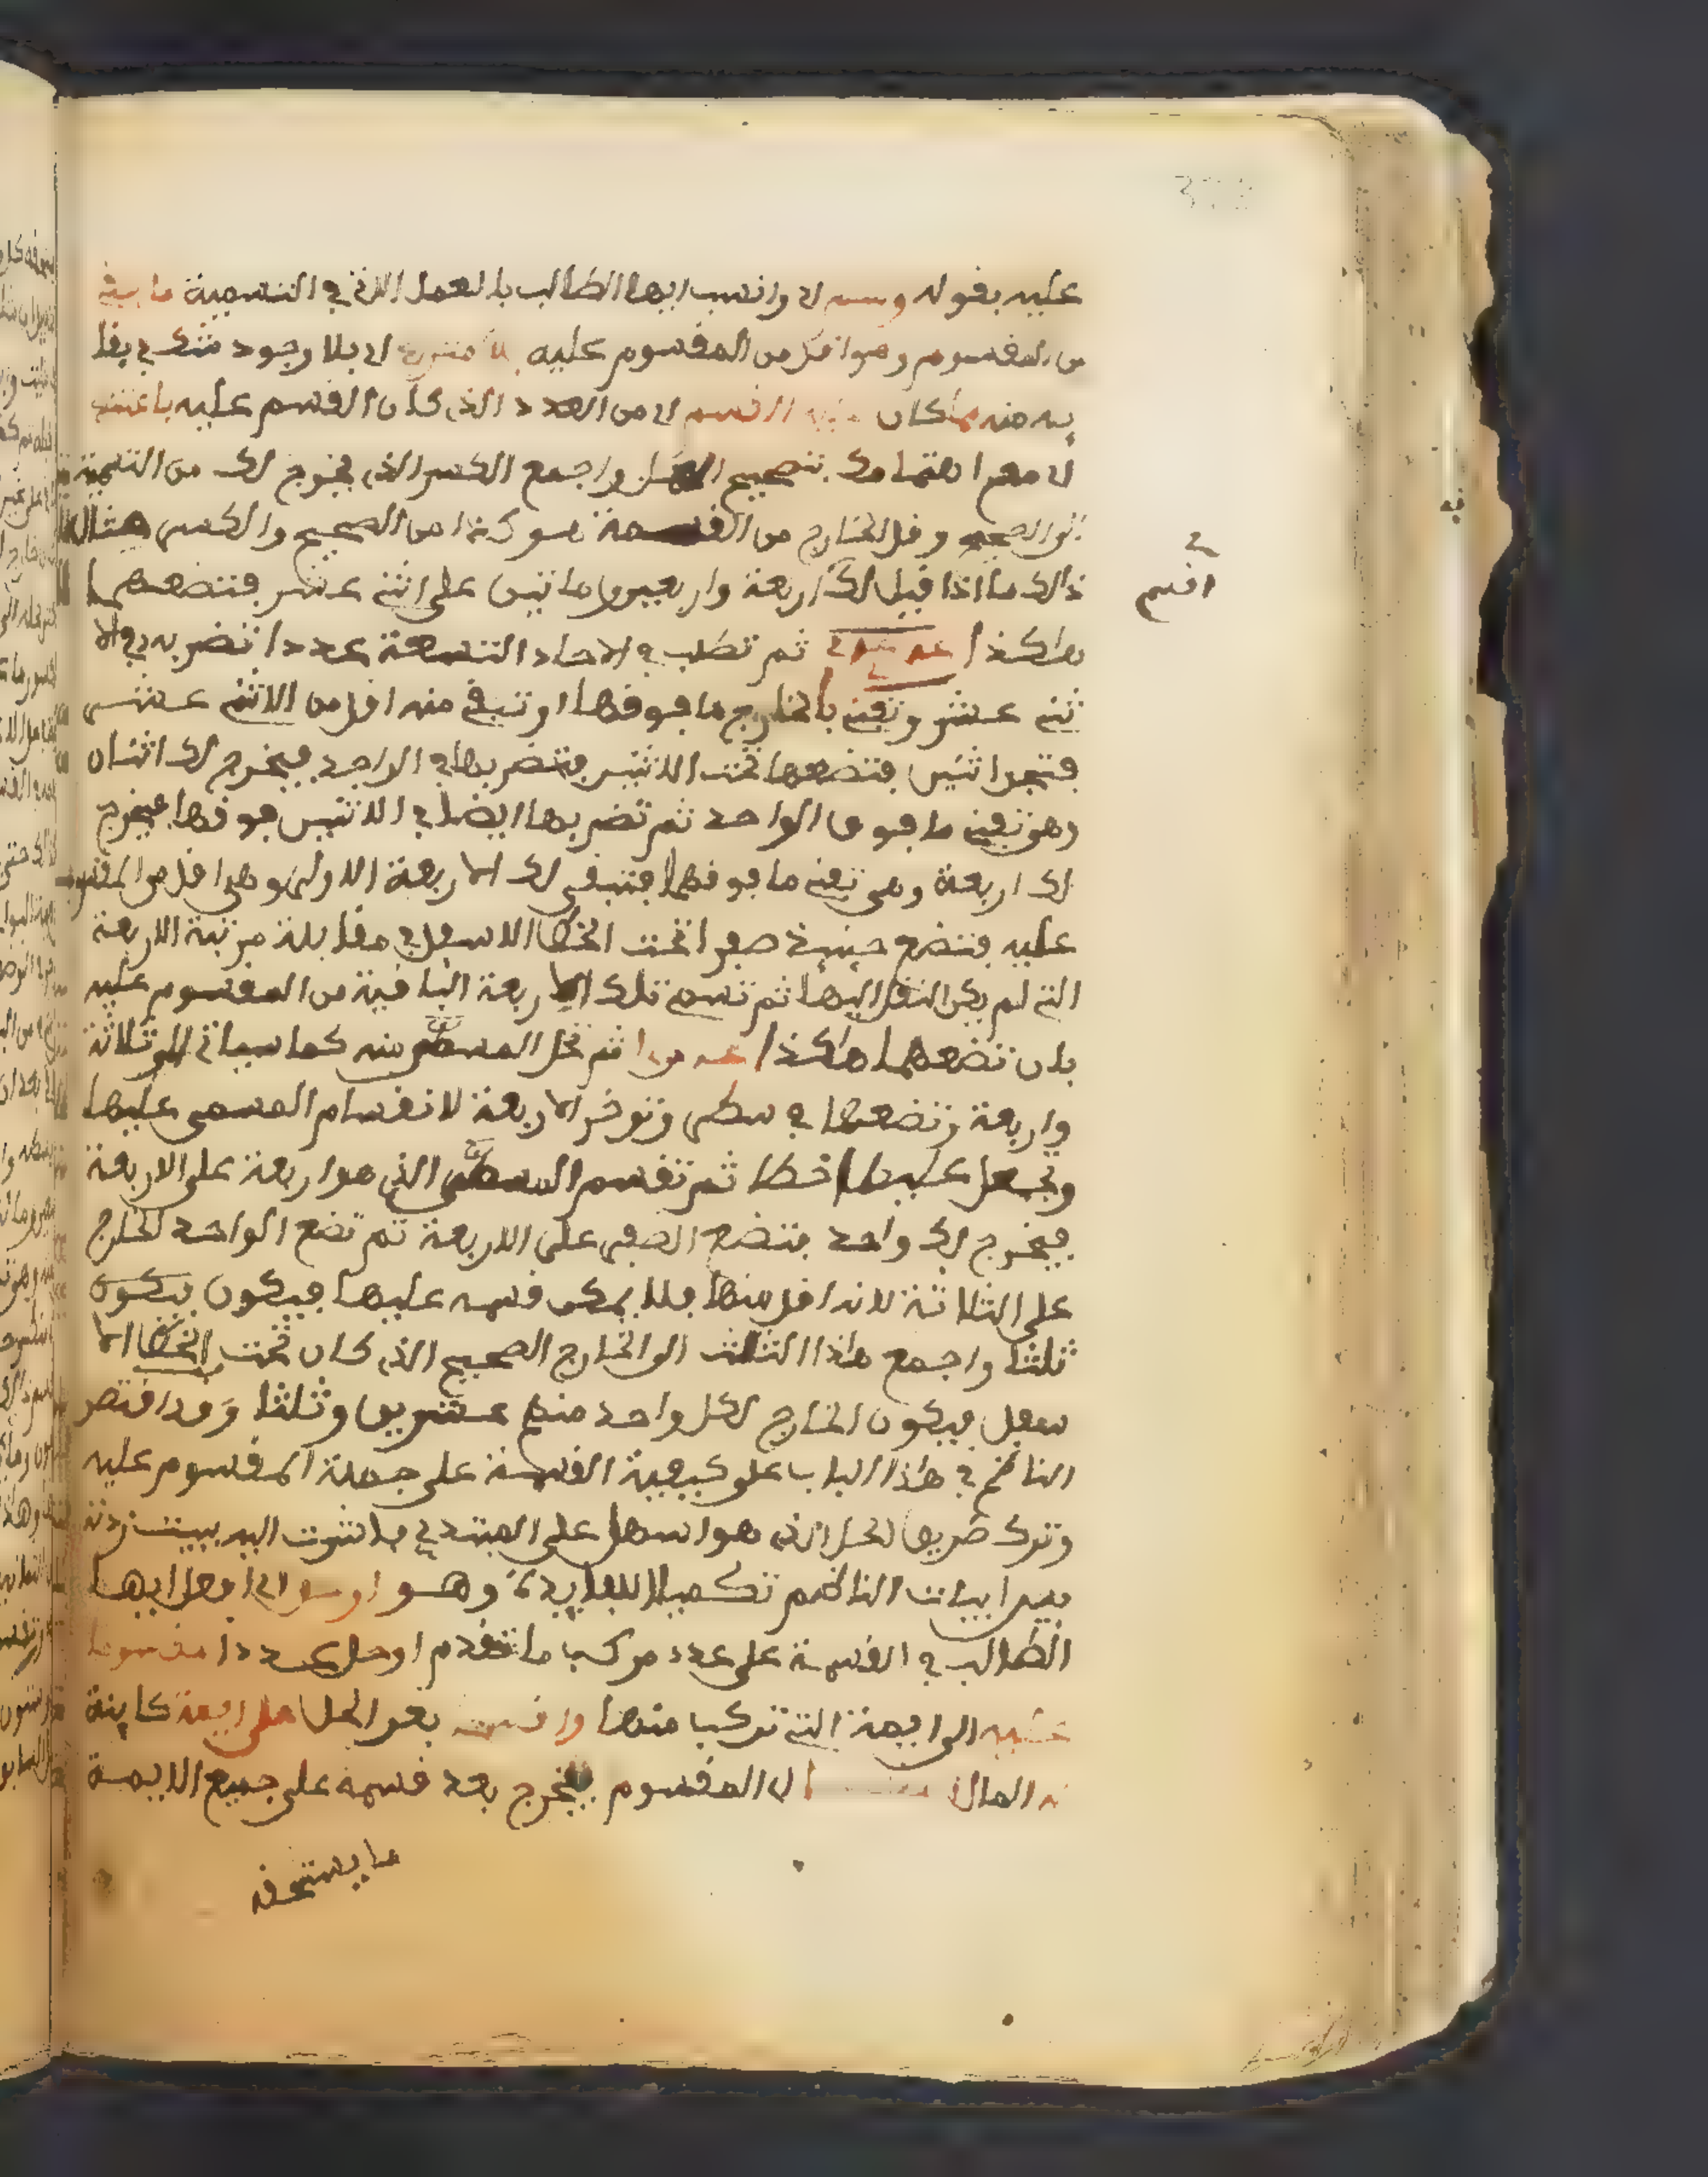 عليه بقوله وسم اي وانسب ايها الطالب بالعمل الاتي في التسمية ما بقي
من المقسوم وهو اقل من المقسوم عليه بلا اي بلا وجود شك في بقا
يه منه مما كان عليه القسم اي من العدد الذي كان القسم عليه باعتنى
اي مع اهتمامك بتصحيح العمل واجمع الكسر الذي يخرج لك من التسمية
الى الصحيح وقل الخارج من القسمة هو كذا من الصحيح والكسر مثال
اقسم
ذالك ما اذا قيل لك اربعة واربعين وماتين على اثنى عشر فتضعهما
هاكذا ثم تطلب في الاحاد التسعة عددا تضربه في الا
ثني عشر وتفني بالخارج ما فوقها او تبقي منه اقل من الاثني عشر
فتجد اثنين فتضعها تحت الاثنين فتضربها في الواحد فيخرج لك اثنان
وهو تفني ما فوق الواحد ثم تضربها ايضا في الاثنين فوقها فيخرج
لك اربعة وهي تفني ما فوقها فتبقى لك الاربعة الاولى وهي اقل من المقسوم
عليه فتضع حينئذ صفرا تحت الخط الاسفل في مقابلة مرتبة الاربعة
التي لم يكن النقل اليها ثم تسمي تلك الاربعة الباقية من المقسوم عليه
بان تضعهما هاكذا ثم تحل المسمى منه كما سياتي الى ثلاثة
واربعة وتضعها في سطر وتوخر الاربعة لانقسام المسمى عليها
وتجعل عليها خطا ثم تقسم المسمى الذي هو اربعة على الاربعة
فيخرج لك واحد فتضع الصفر على الاربعة ثم تضع الواحد الخارج
على الثلاثة لانه اقل منها فلا يمكن قسمه عليها فيكون فيكون
ثلثا واجمع هاذا الثلث الى الخارج الصحيح الذي كان تحت الخط الا
سفل فيكون الخارج لكل واحد منهم عشرين وثلثا وقد اقتصر
الناظم في هاذا الباب على كيفية القسمة على جملة المقسوم عليه
وترك طريق الحل الذي هو اسهل على المبتدي فاشرت اليه ببيت زدته
بين ابيات الناظم تكميلا للفايدة وهو او حل ايها
الطالب في القسمة على عدد مركب ما تقدم او حل عددا مقسوما
عليه الى ايمة التي تركب منها واقسم بعد الحل على ايمة كاينة
له المال اي المقسوم يخرج بعد قسمه على جميع الايمة
ما يستحقه